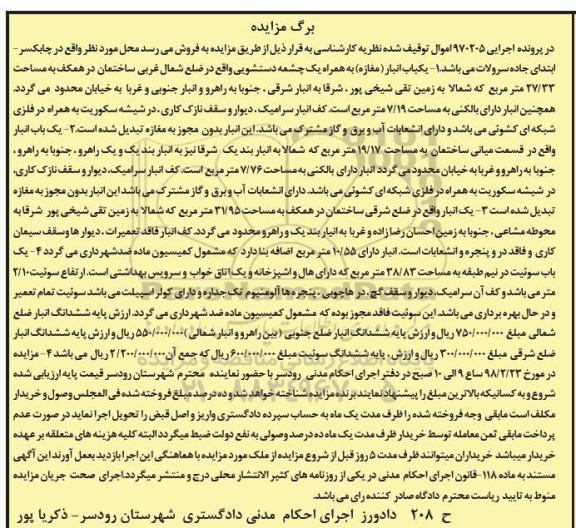 برگ مزایده
در پرونده اجرایی ۹۷۰۲۰۵ اموال توقیف شده نظریه کارشناسی به قرار ذیل از طریق مزایده به فروش می رسد محل مورد نظر واقع در چابکسر -
ابتدای جاده سرولات می باشد.۱- یکباب انبار (مغازه) به همراه یک چشمه دستشویی واقع در ضلع شمال غربی ساختمان در همکف به مساحت
۲۷/۳۳ متر مربع که شمالا به زمین تقی شیخی پور ، شرقا به انبار شرقی ، جنوبا به راهرو و انبار جنوبی و غربا به خیابان محدود می گردد.
همچنین انبار دارای بالکنی به مساحت ۷/۱۹ متر مربع است. کف انبار سرامیک ، دیوار و سقف نازک کاری ، در شیشه سکوریت به همراه در فلزی
شبکه ای کشوئی می باشد و دارای انشعابات آب و برق و گاز مشترک می باشد. این انبار بدون مجوز به مغازه تبدیل شده است.۲- یک باب انبار
واقع در قسمت میانی ساختمان به مساحت ۱۹/۱۷ متر مربع که شمالا به انبار بند یک شرقا نیز به انبار بند یک و یک راهرو ، جنوبا به راهرو ،
جنوبا به راهرو و غربا به خیابان محدود می گردد انبار دارای بالکنی به مساحت ۷/۷۶ متر مربع است. کف انبار سرامیک، دیوار و سقف نازک کاری،
در شیشه سکوریت به همراه در فلزی شبکه ای کشوئی می باشد. دارای انشعابات آب و برق و گاز مشترک می باشد این انبار بدون مجوز به مغازه
تبدیل شده است ۳- یک انبار واقع در ضلع شرقی ساختمان در همکف به مساحت ۳۱/۹۵ متر مربع که شمالا به زمین تقی شیخی پور شرقا به
محوطه مشاعی ، جنوبا به زمین احسان رضا زاده و غربا به انبار بند یک و راهرو محدود می گردد. کف انبار فاقد تعمیرات ، دیوار ها و سقف سیمان
کاری و فاقد در و پنجره و انشعابات است. انبار دارای ۱۰/۵۵ متر مربع اضافه بنا دارد که مشمول کمیسیون ماده صد شهرداری می گردد ۴- یک
باب سوئیت در نیم طبقه به مساحت ۳۸/۸۳ متر مربع که دارای هال و آشپزخانه و یک اتاق خواب و سرویس بهداشتی است. ارتفاع سوئیت ۲/۱۰
متر می باشد و کف آن سرامیک ، دیوار و سقف گچ ، در ها چوبی ، پنجره ها آلومنیوم تک جداره و دارای کولر اسپیلت می باشد سوئیت تمام تعمیر
و در حال بهره برداری می باشد. این سوئیت فاقد مجوز بوده که مشمول کمیسیون ماده صد شهرداری می گردد. ارزش پایه ششدانگ انبار ضلع
شمالی مبلغ ۷۵۰/۰۰۰/۰۰۰ ریال و ارزش پایه ششدانگ انبار ضلع جنوبی (بین راهرو و انبار شمالی) ۵۵۰/۰۰۰/۰۰۰ ریال و ارزش پایه ششدانگ انبار
ضلع شرقی مبلغ ۳۰۰/۰۰۰/۰۰۰ ریال و ارزش ، پایه ششدانگ سوئیت مبلغ ۶۰۰/۰۰۰/۰۰۰ ریال که جمع آن ۲/۲۰۰/۰۰۰/۰۰۰ ریال می باشد ۴- مزایده
در مورخ ۹۸/۲/۲۳ ساع ۹ الی ۱۰ صبح در دفتر اجرای احکام مدنی رودسر با حضور نماینده محترم شهرستان رودسر قیمت پایه ارزیابی شده
شروع و به کسانیکه بالاترین مبلغ را پیشنهاد نمایند برنده مزایده شناخته خواهد شد و ده درصد مبلغ فروخته شده فی المجلس وصول و خریدار
مکلف است مابقی وجه فروخته شده را ظرف مدت یک ماه به حساب سپرده دادگستری واریز و اصل قبض را تحویل اجرا نماید در صورت عدم
پرداخت مابقی ثمن معامله توسط خریدار ظرف مدت یک ماه ده درصد وصولی به نفع دولت ضبط میگردد البته کلیه هزینه های متعلقه بر عهده
خریدار میباشد خریداران میتوانند ظرف مدت ۵ روز قبل از شروع مزایده از ملک مورد مزایده با هماهنگی این اجرا بازدید بعمل آورند این آگهی
مستند به ماده ۱۱۸-قانون اجرای احکام مدنی در یکی از روزنامه های کثیر الانتشار محلی درج و منتشر میگردد اجرای صحت جریان مزایده
منوط به تایید ریاست محترم دادگاه صادر کننده رای می باشد.
ح ۲۰۸ دادورز اجرای احکام مدنی دادگستری شهرستان رودسر- ذکریا پور